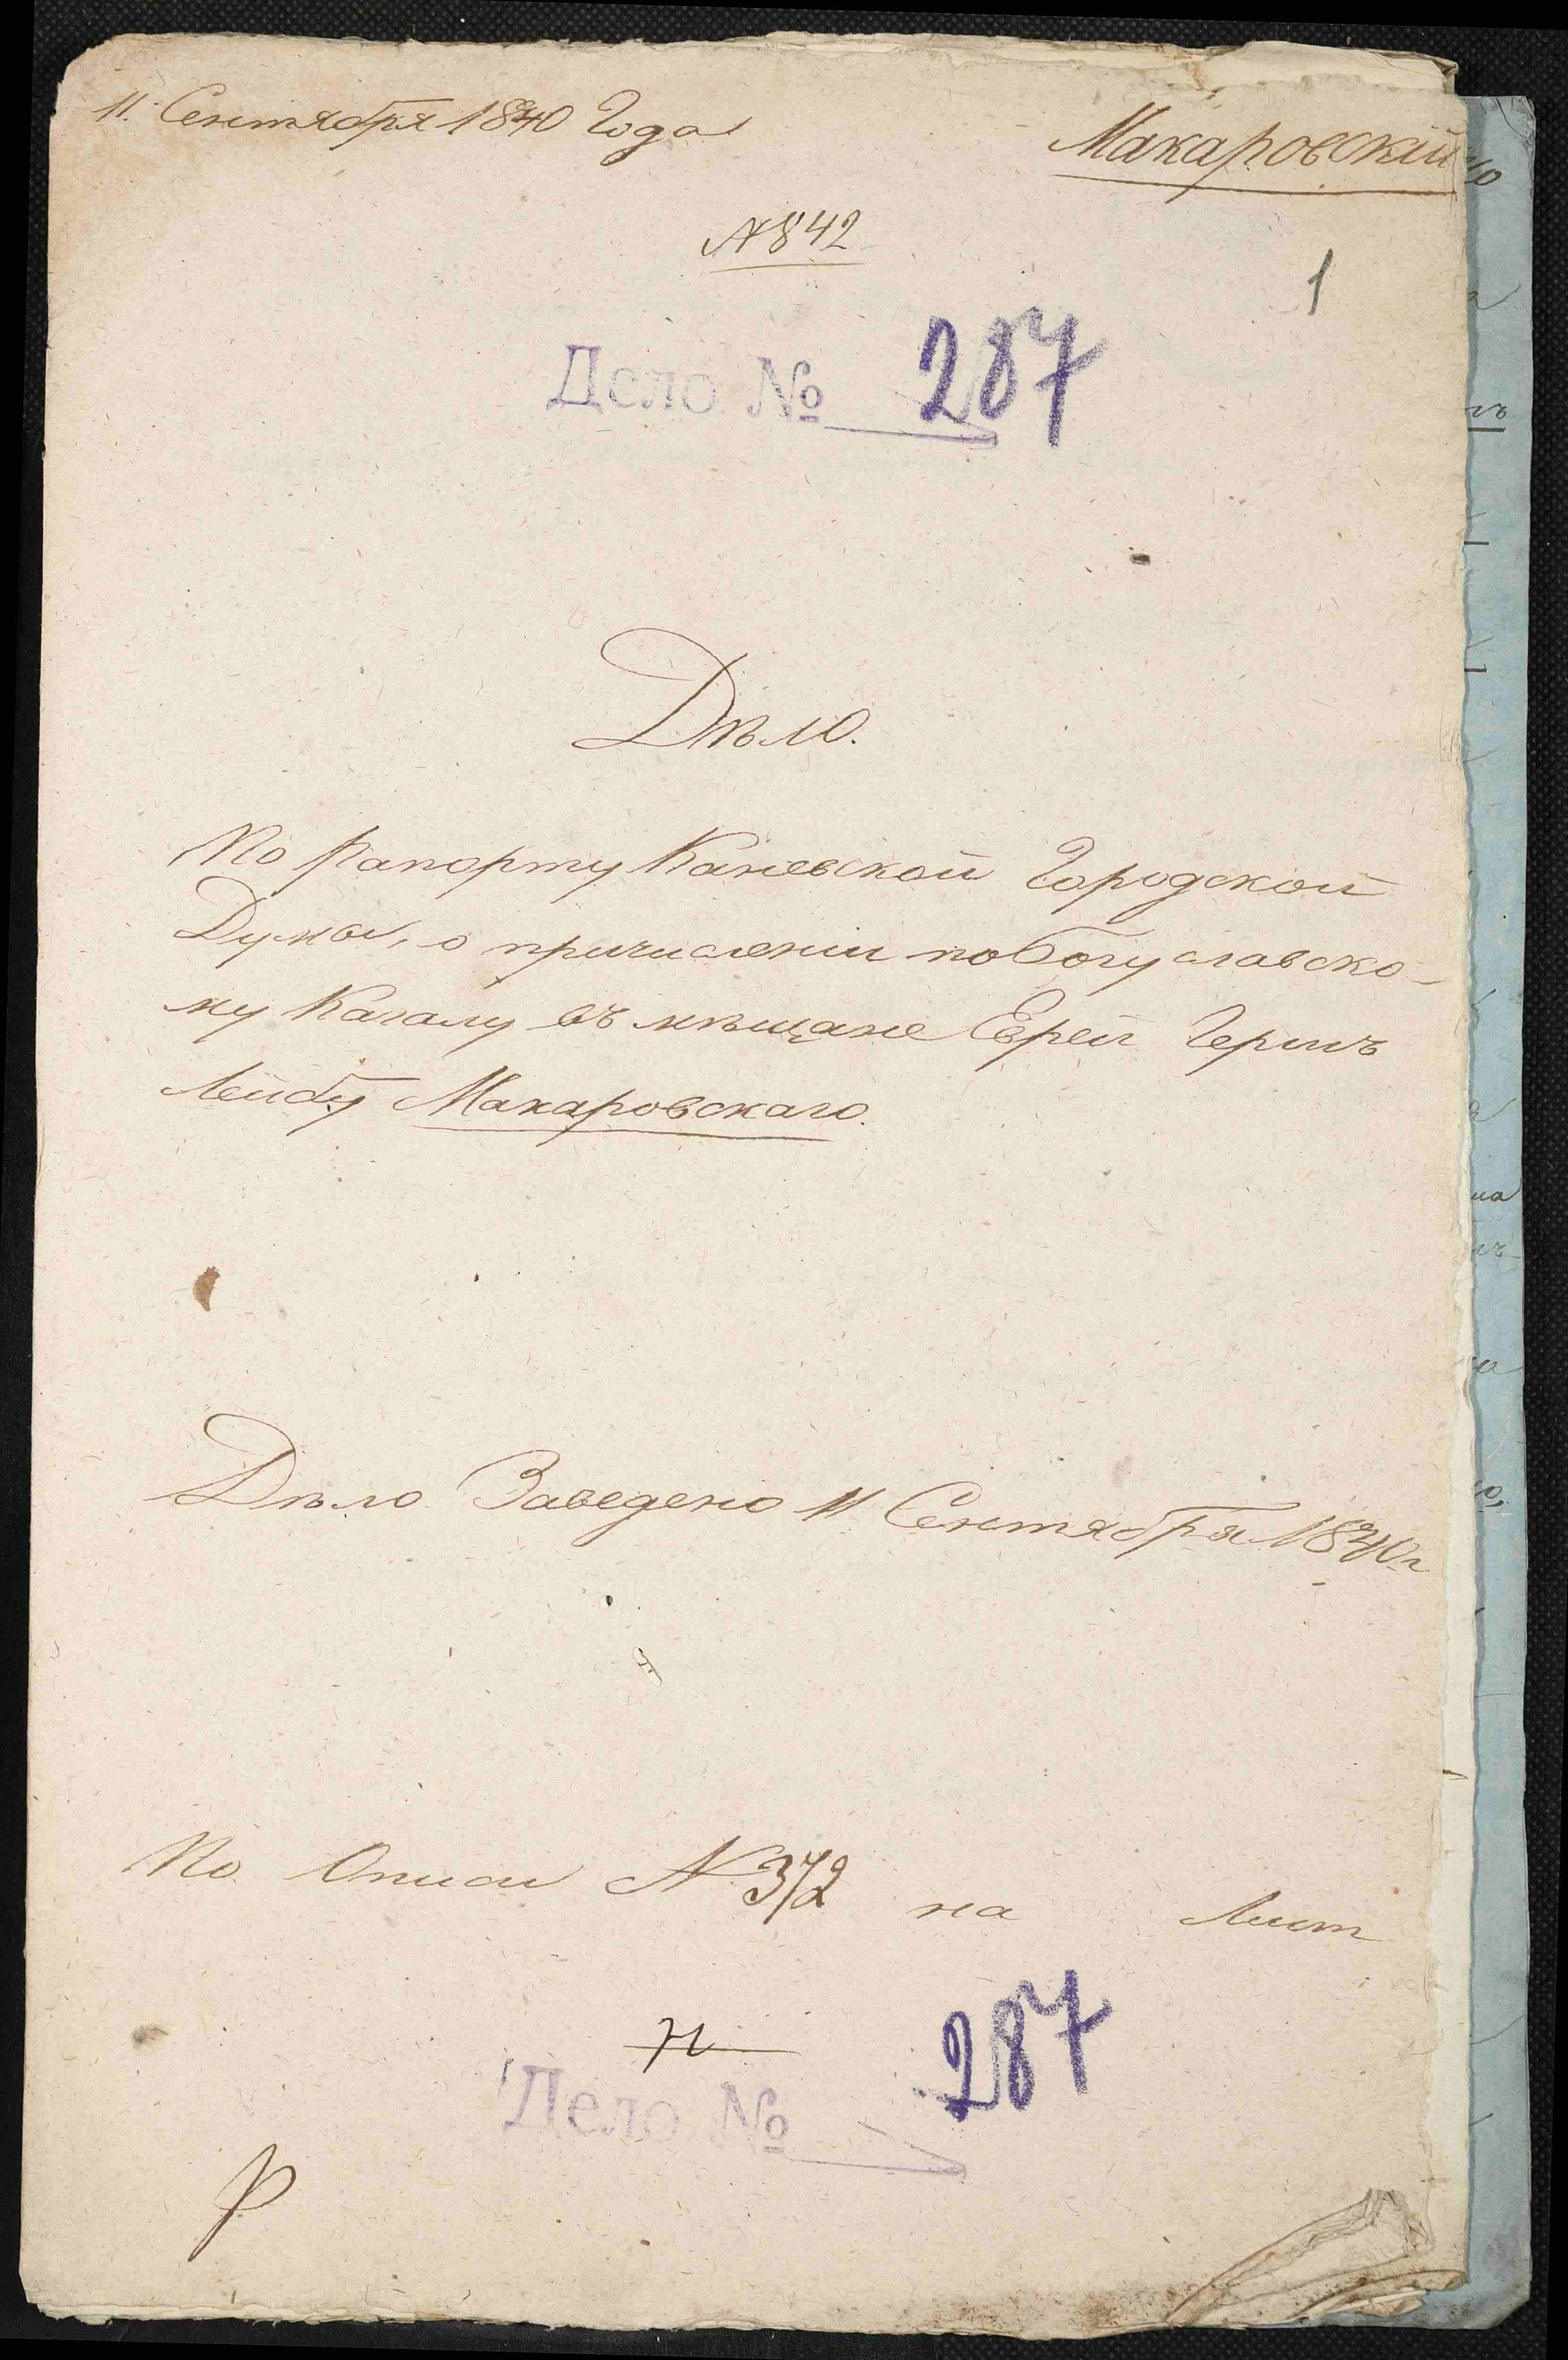 11. Сентября 1840 Года
Макаровскій
№ 842
1
Дело № 287
Дѣло.
По рапорту Каневской Городской
Думы, о причисленіи по Богуславско-
му Кагалу въ мѣщане Еврея Герша
Лейбу Макаровскаго.
Дѣло Заведено 11 Сентября 1840 г
По Описи № 372 на Лист
Дело № 287